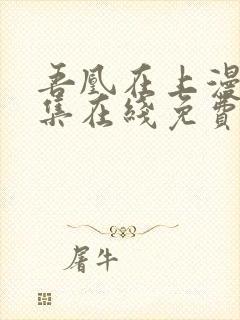 吾凰在上漫
集在线免費
屠牛